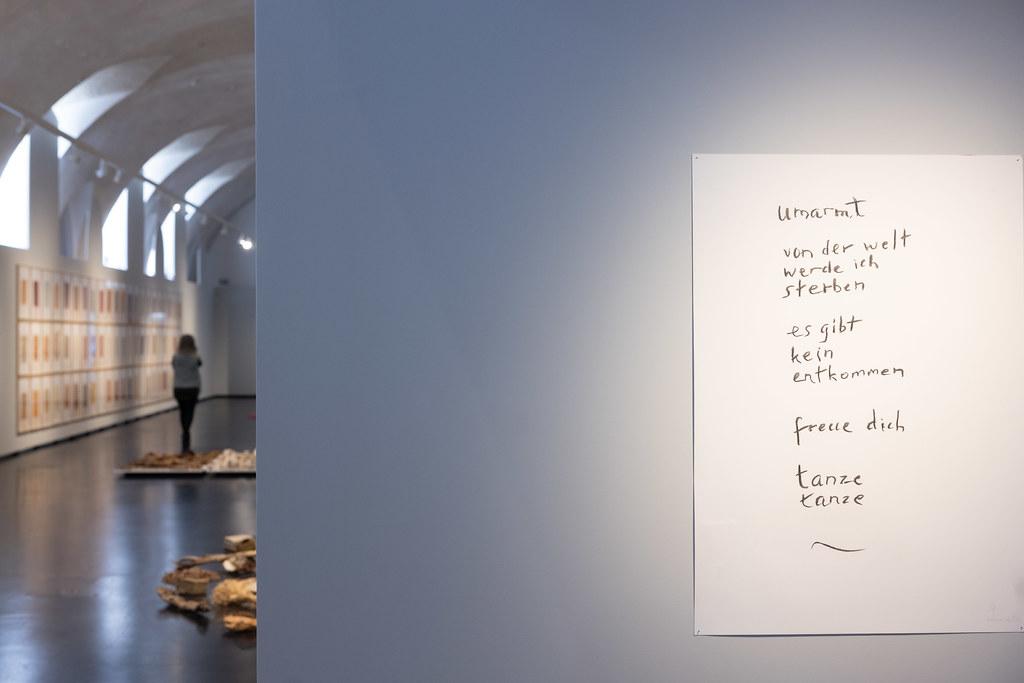 umarmt
von der welt
werde ich
sterben
es gibt
kein
entkommen
freue dich
tanze
tanze